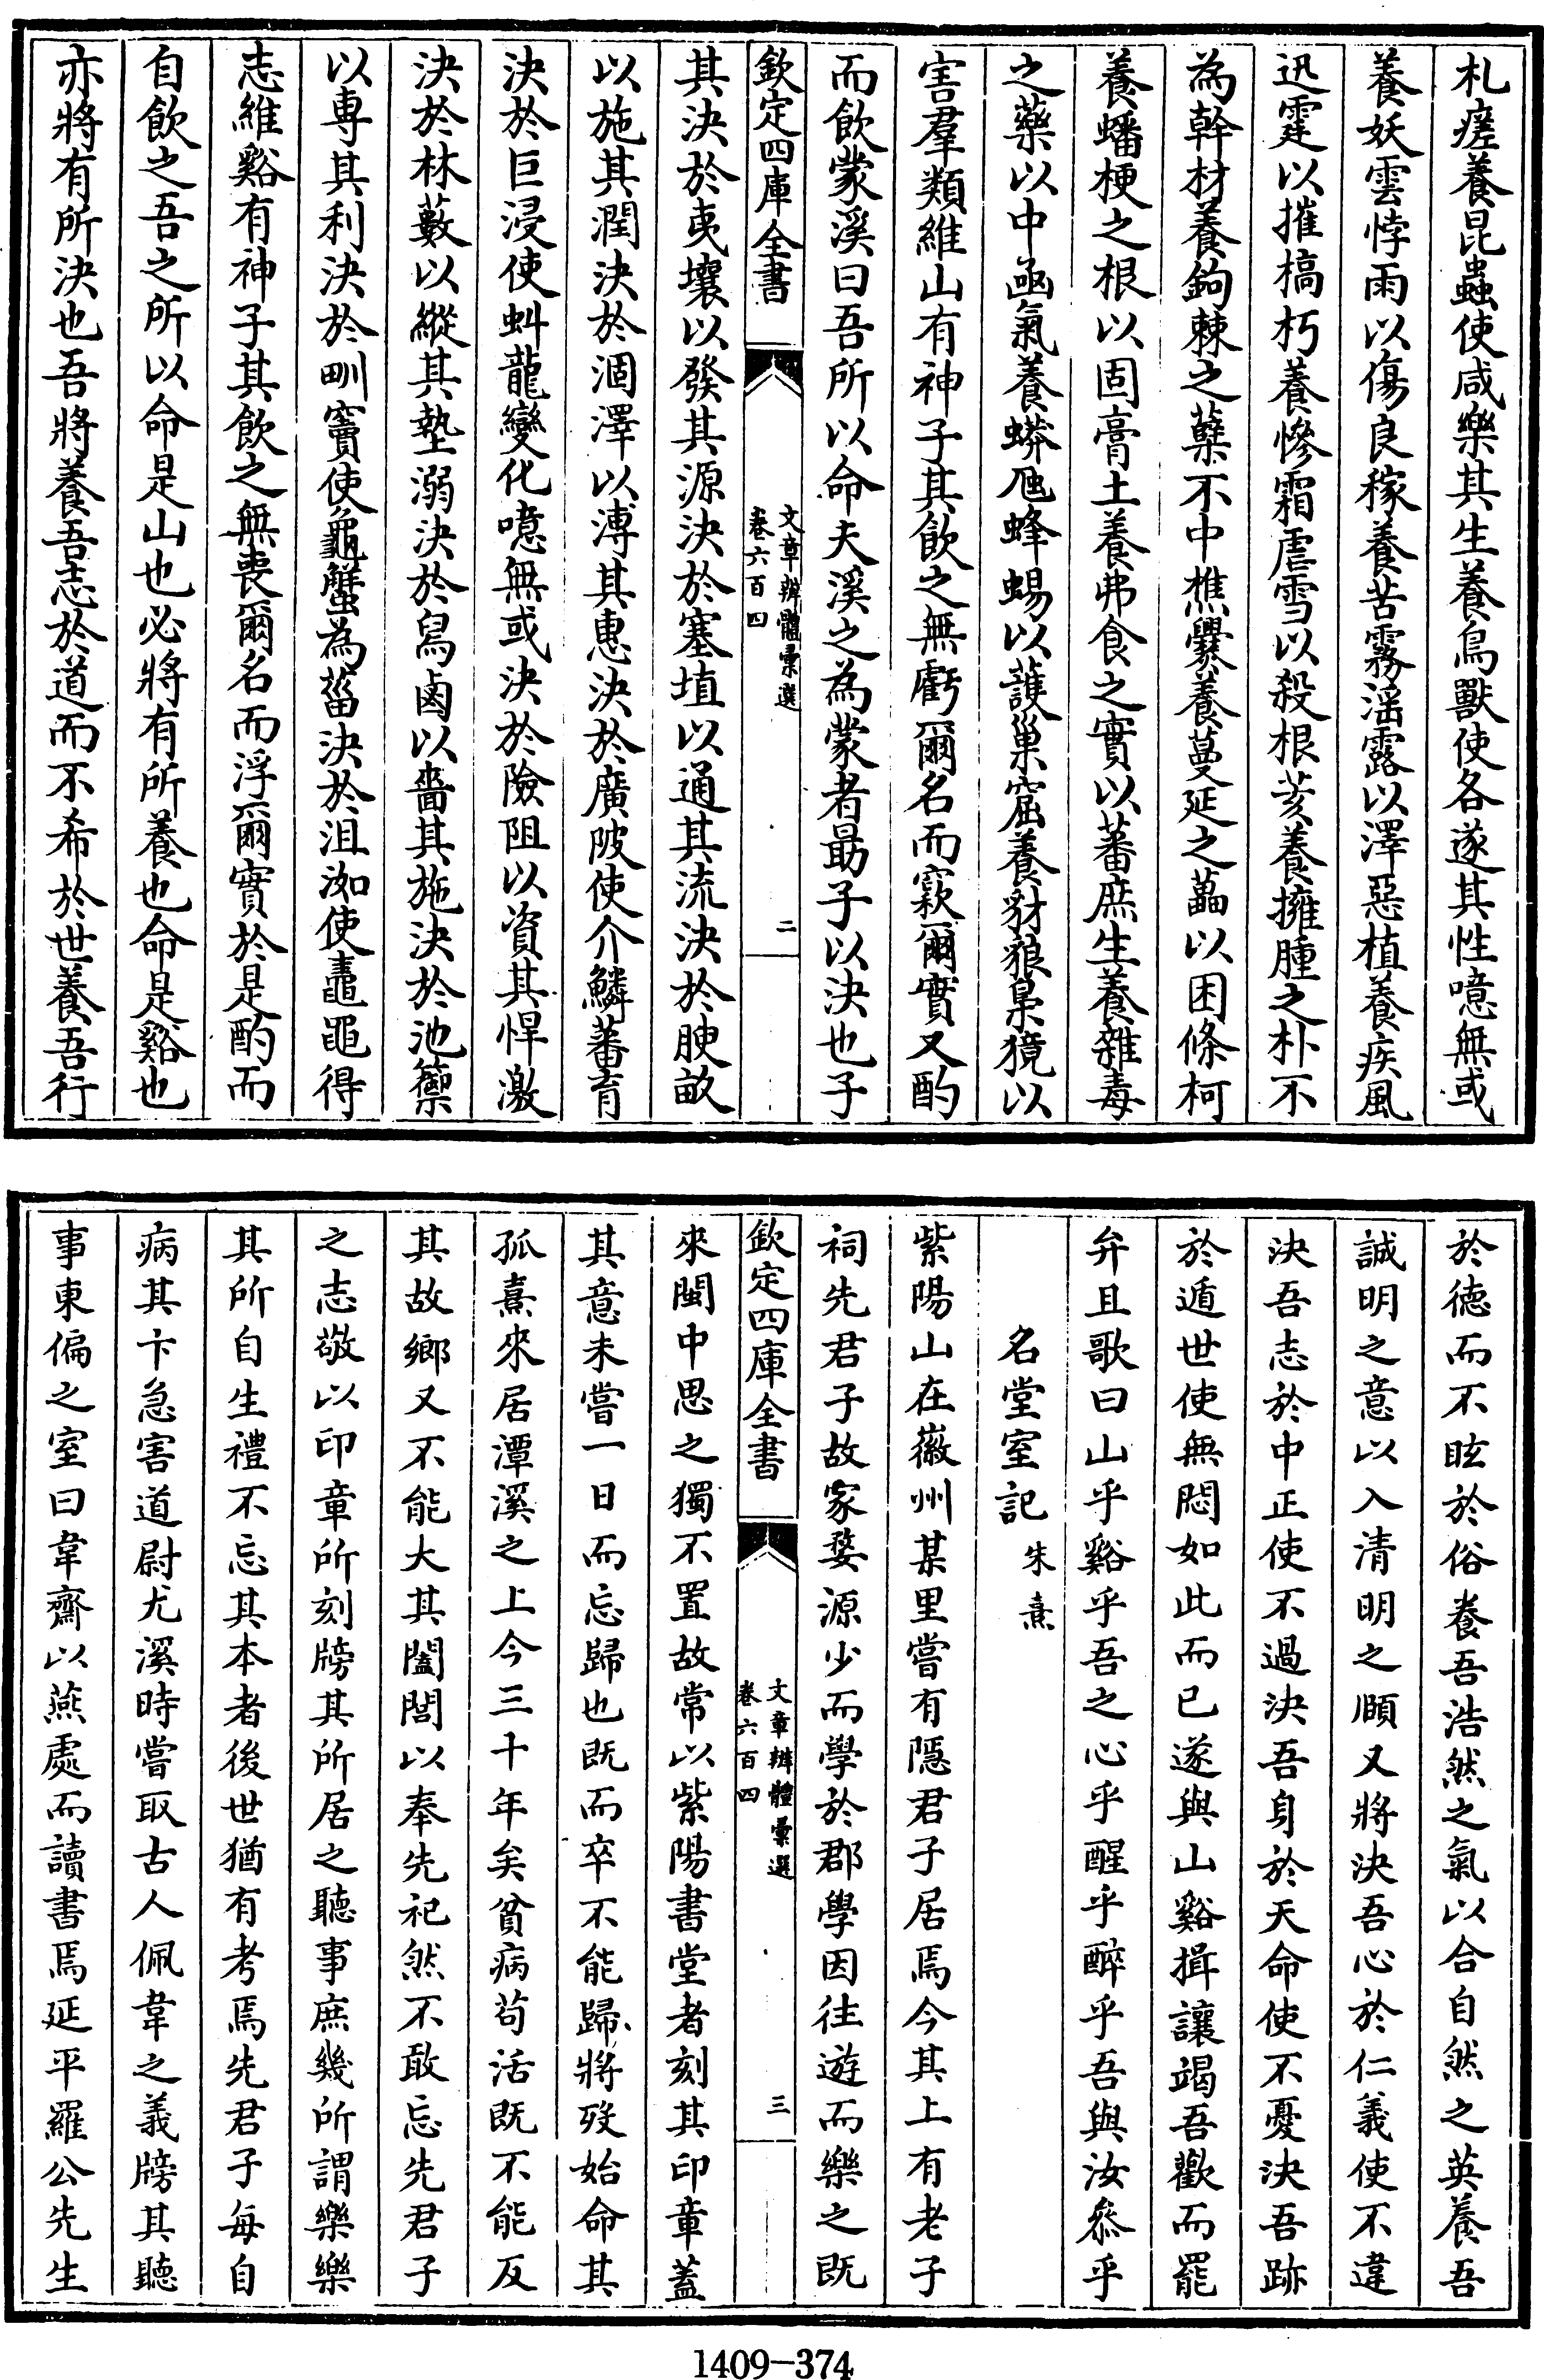 札瘥養昆蟲使咸樂其生養鳥獸使各遂其性噫無或
養妖雲悖雨以傷良稼養苦霧滛露以澤惡植養疾風
迅霆以摧槁朽養慘霜虐雪以殺根荄養擁腫之朴不
為幹材養鉤棘之蘖不中樵爨養蔓延之藟以困條柯
養蟠梗之根以固膏土養弗食之實以蕃庶生養雜毒
之藥以中凾氣養蟒虺蜂蜴以護巢窟養豺狼梟獍以
害羣類維山有神子其飲之無虧爾名而窾爾實又酌
而飲蒙溪曰吾所以命夫溪之為蒙者勗子以決也子
欽定四庫全書
文章辨體彚選
卷六百四
二
其決於夷壤以發其源決於塞埴以通其流決於腴畝
以施其潤決於涸澤以溥其惠決於廣陂使介鱗蕃育
決於巨浸使虯龍變化噫無或決於險阻以資其悍激
決於林藪以縱其墊溺決於舄鹵以嗇其施決於池籞
以專其利決於甽竇使龜蟹為菑決於沮洳使鼃黽得
志維谿有神子其飲之無喪爾名而浮爾實於是酌而
自飲之吾之所以命是山也必將有所養也命是谿也
亦將有所決也吾將養吾志於道而不希於世養吾行
於德而不眩於俗養吾浩然之氣以合自然之英養吾
誠明之意以入清明之頥又將決吾心於仁義使不違
決吾志於中正使不過決吾身於天命使不憂決吾跡
於遁世使無悶如此而已遂與山谿揖讓竭吾歡而罷
弁且歌曰山乎谿乎吾之心乎醒乎醉乎吾與汝叅乎
名堂室記 朱熹
紫陽山在徽州某里嘗有隱君子居焉今其上有老子
祠先君子故家婺源少而學於郡學因往遊而樂之既
欽定四庫全書
文章辨體彚選
卷六百四
三
來閩中思之獨不置故常以紫陽書堂者刻其印章蓋
其意未嘗一日而忘歸也既而卒不能歸將歿始命其
孤熹來居潭溪之上今三十年矣貧病苟活既不能反
其故鄉又不能大其闔閭以奉先祀然不敢忘先君子
之志敬以印章所刻牓其所居之聽事庶幾所謂樂樂
其所自生禮不忘其本者後世猶有考焉先君子每自
病其卞急害道尉尤溪時嘗取古人佩韋之義牓其聽
事東偏之室曰韋齋以燕處而讀書焉延平羅公先生
1409-374